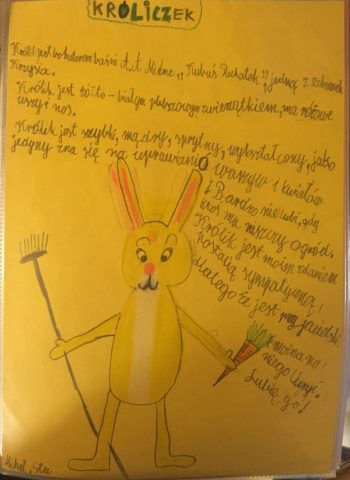 KRÓLICZEK
Królik jest bohaterem baśni A.A Milne „Kubuś Puchatek", jedną z zabawek
Krzysia.
Królik jest żółto-białym pluszowym zwierzątkiem, ma różowe
uszy i nos.
Królik jest szybki, mądry, sprytny, wykształcony, jako
jedyny zna się na uprawianiu warzyw i kwiatów
i Bardzo nie lubi, gdy
ktoś mu niszczy ogród.
Królik jest moim zdaniem
postacią sympatyczną!
dlatego że jest przyjacielski
i można na
niego liczyć.
Lubię go!